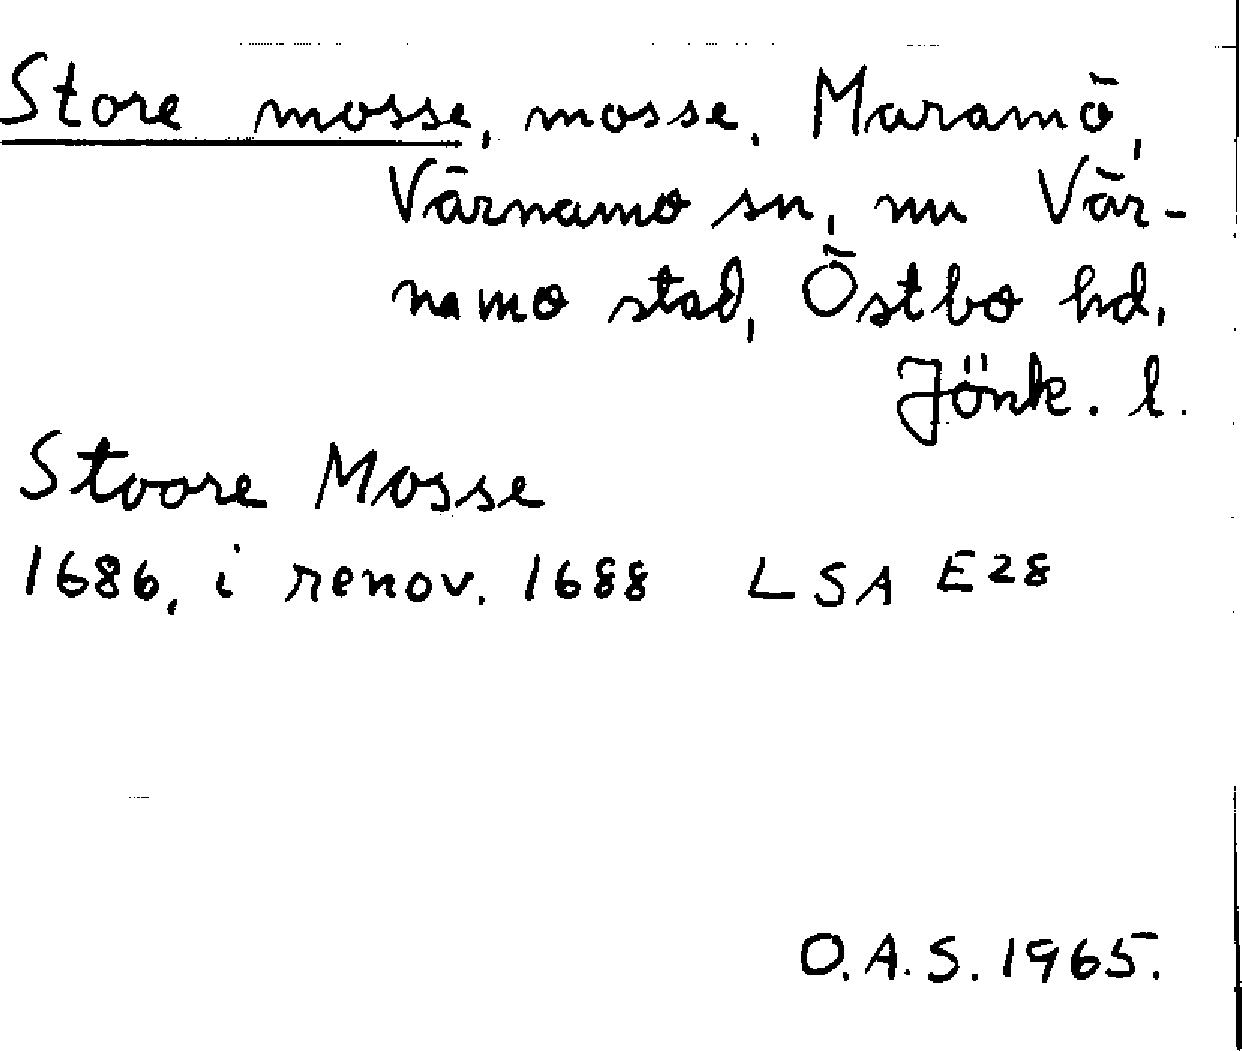 Store mosse, mosse, Maramö,
Värnamo sn, nu Vär-
namo stad, Östbo hd,
Jönk. l.
Stoore Mosse
1686, i renov. 1688 LSA E28
O.A.S. 1965.